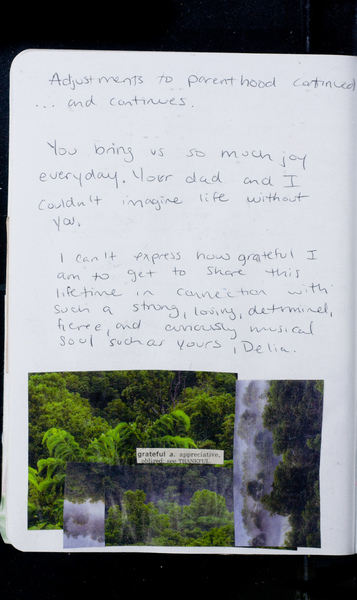 Adjustments to parenthood continued
... and continues.
You bring us so much joy
everyday. Your dad and I
couldn't imagine life without
you.
I can't express how grateful I
am to get to share this
lifetime in connection with
such a strong, loving, determined,
fierce, and curiously musical
soul such as yours, Delia.
grateful a. appreciative,
obliged; see THANKFUL.